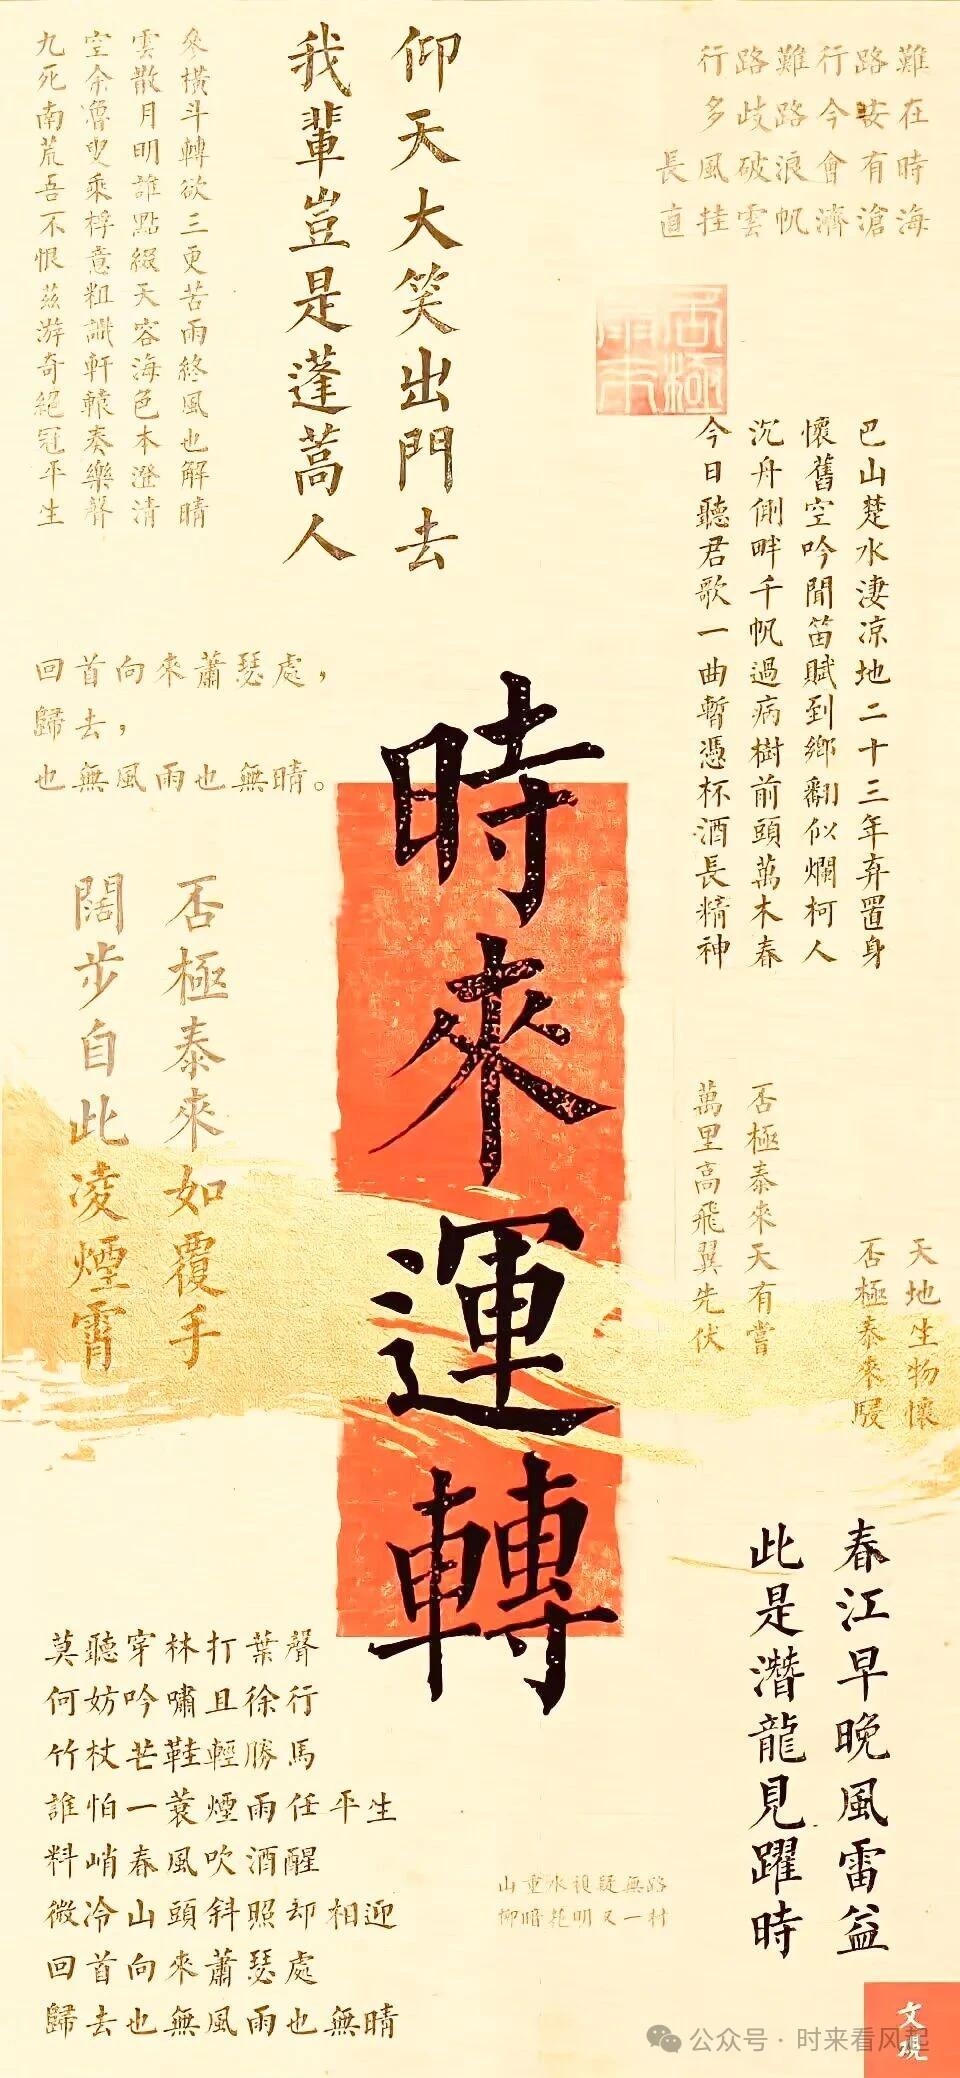 行路難行路難
多歧路今安在
長風破浪會有時
直挂雲帆濟滄海
仰天大笑出門去
我輩豈是蓬蒿人
參橫斗轉欲三更苦雨終風也解晴
雲散月明誰點綴天容海色本澄清
空余魯叟乘桴意粗識軒轅奏樂聲
九死南荒吾不恨茲游奇絕冠平生
巴山楚水淒凉地二十三年弃置身
懷舊空吟聞笛賦到鄉翻似爛柯人
沉舟側畔千帆過病樹前頭萬木春
今日聽君歌一曲暫憑杯酒長精神
回首向來蕭瑟處，
歸去，
也無風雨也無晴。
時來運轉
否極泰來如覆手
闊步自此凌煙霄
否極泰來天有嘗
萬里高飛翼先伏
天地生物懷
否極泰來駸
春江早晚風雷益
此是潛龍見躍時
莫聽穿林打葉聲
何妨吟嘯且徐行
竹杖芒鞋輕勝馬
誰怕一蓑煙雨任平生
料峭春風吹酒醒
微冷山頭斜照却相迎
回首向來蕭瑟處
歸去也無風雨也無晴
山重水複疑無路
柳暗花明又一村
文观
公众号·时来看风起